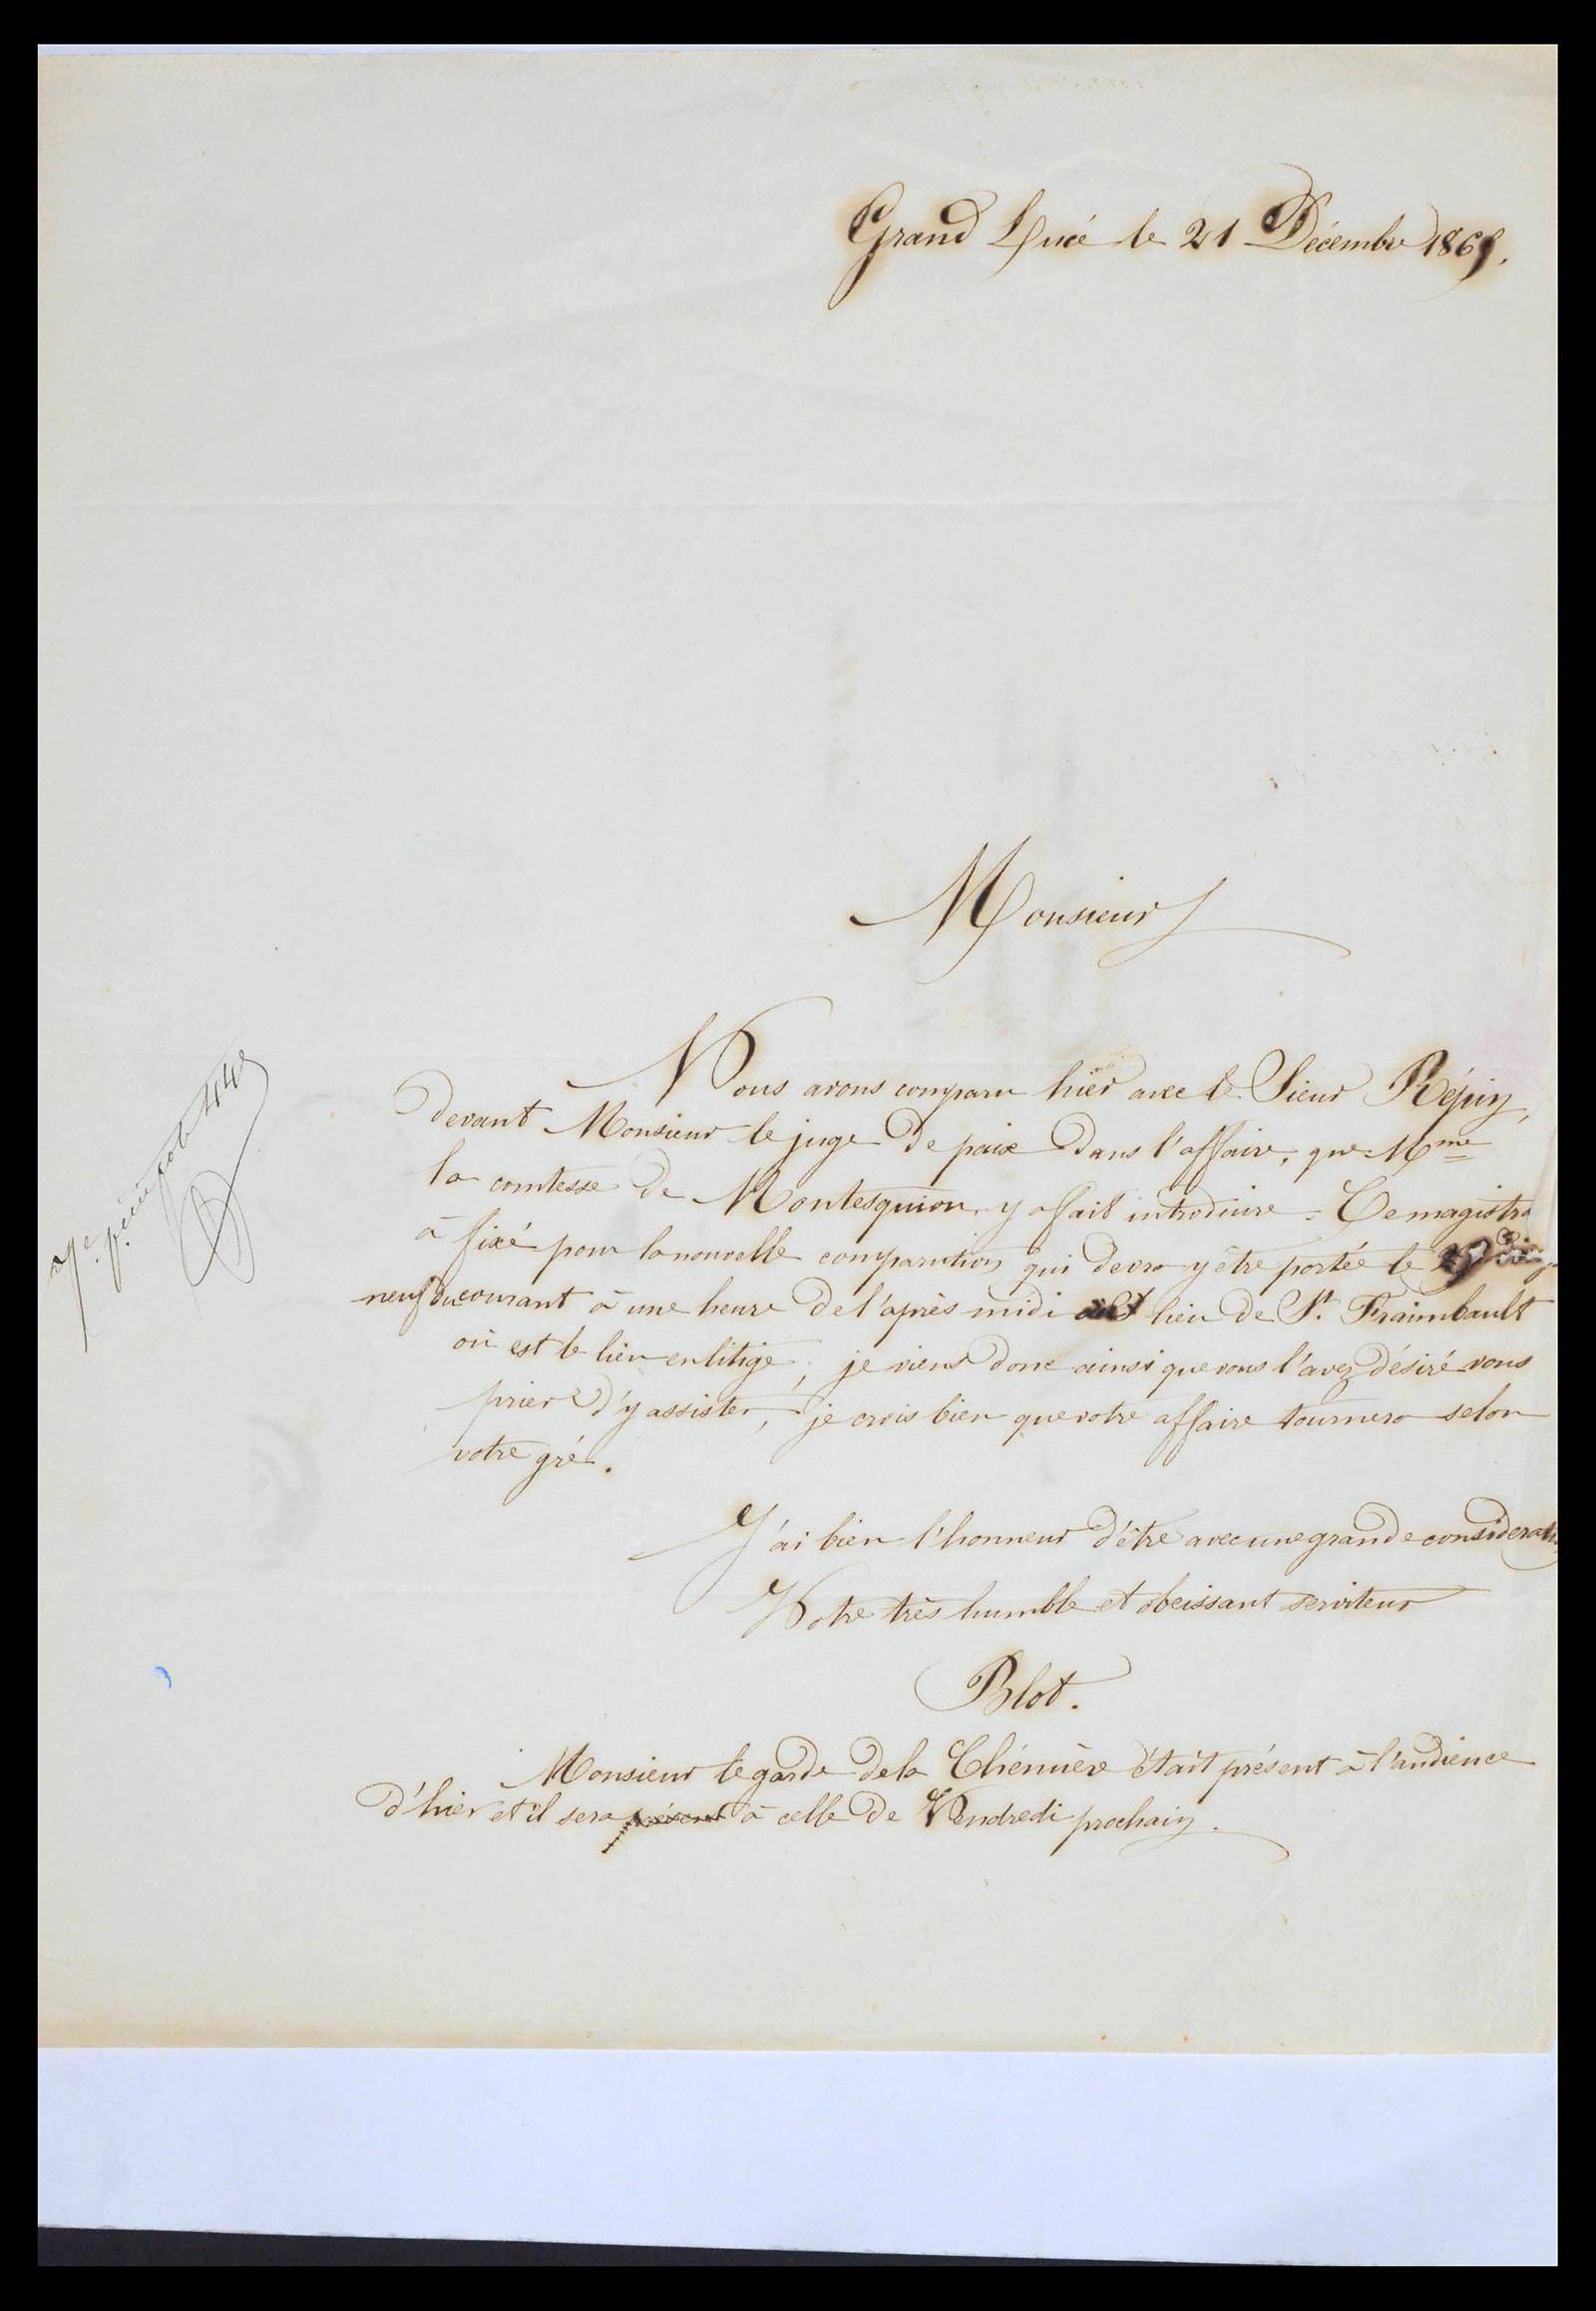 Grand Lucé le 21 Décembre 1865.
Monsieur
Nous avons comparu hier avec le Sieur Répin,
devant Monsieur le juge de paix dans l'affaire, que Mme
la comtesse de Montesquiou y a fait introduire. Ce magistra
à fixé pour la nouvelle comparution qui devra y être portée le
neuf du courant à une heure de l'après midi lieu de St. Fraimbault
où est le lieu en litige ; je viens donc ainsi que vous l'avez désiré vous
prier d'y assister, je crois bien que votre affaire tournera selon
votre gré.
J'ai bien l'honneur d'être avec une grande considerati
Votre très humble et obeissant serviteur
Blot.
Monsieur le garde de la Chénuère était présent à l'audience
d'hier et il sera présent à celle de Vendredi prochain.